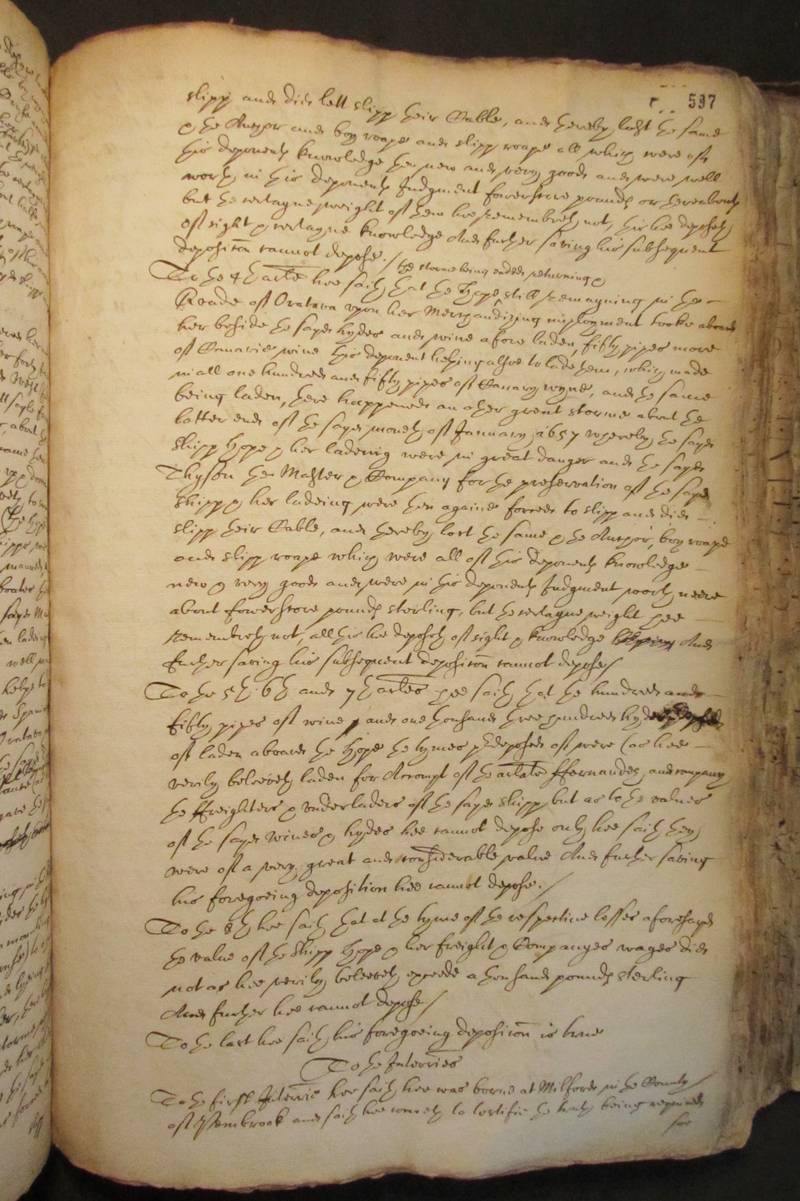 597
slipp and did lett slipp their Cable, and thereby lost the same
& the Anchor and boy roape and slipp roape all which were of
his deponents knowledge then new and very good and were well
worth in his deponents Judgment fowerscore pounds or thereabouts
but the certayne weight of them hee remembreth not, this hee deposeth
of sight & certayne knowledge And further saving his subsequent
deposicon cannot depose./
the storme being ended, returning &
To the 4th arle hee saith that the Hope still remayning in the
Roade of Oratava upon her Merchandizing imployment tooke aboard
her beside the sayd hydes and wine afore laden, fifty pipes more
of Canarie wine this deponent helping alsoe to lade them, which made
in all one hundred and fifty pipes of Canary wyne, and the same
being laden, there happened an other great storme about the
latter end of the sayd moneth of January 1657 whereby the sayd
shipp Hope & her ladeing were in great danger and the sayd
Thyson the Master & Company for the preservation of the sayd
shipp & her ladeing were then againe forced to slipp and did
slipp their Cable, and thereby lost the same & the Anchor, boy roape
and slipp roape which were all of his deponents knowledge
new & very good and were in his deponents Judgment worth neere
about fowerscore pounds sterling, but the certayne weight hee
remembreth not, all this hee deposeth of sight & knowledge And
further saving his subsequent deposicon cannot depose/
To the 5th 6th and 7th arles hee saith that the hundred and
fifty pipes of wine, and one thousand three hundred hydes
of laden aboard the Hope the tymes predeposed of were (as hee
verily beleeveth laden for Accompt of the arlate ffernandez and company
the ffreighters & underladers of the sayd shipp, but as to the values
of the sayd wines & hydes hee cannot depose only hee saith they
were of a very great and considerable value And further saving
his foregoeing deposition hee cannot depose./
To the 8th hee saith that at the tyme of the respective losses aforesayd
the value of the shipp Hope & her freight & Companyes wages did
not as hee verily beleeveth exceede a thousand pounds sterling
And further hee cannot depose/
To the last hee saith his foregoeing deposicon is true
To the Interries
To the first Interrie hee saith hee was borne at Milford in the County
of Pembrook and saith hee cometh to testifie the truth being required
for